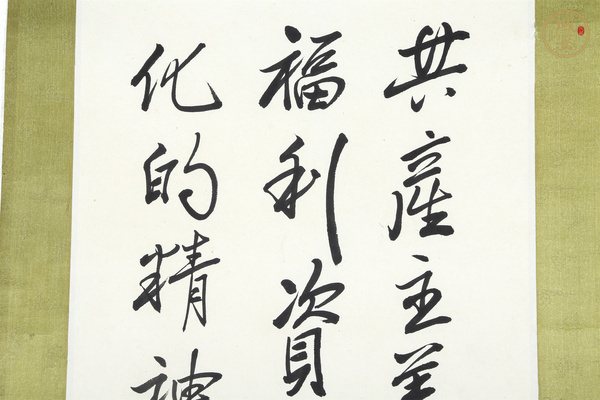 共產主義
福利資
化的精神